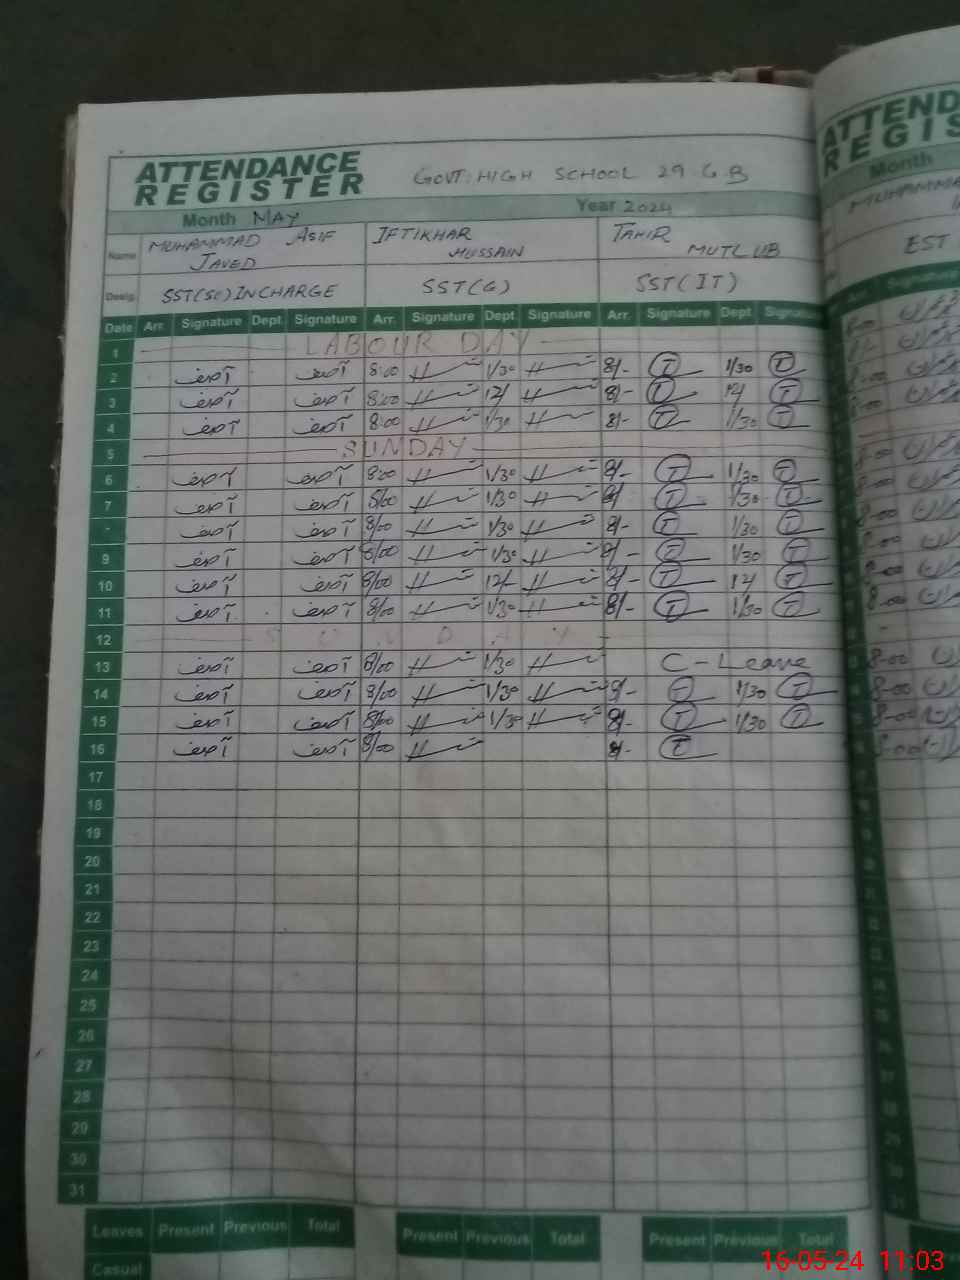 ATTENDANCE
REGISTER
GOVT: HIGH SCHOOL 29 G B
Month MAY Year 2024
Name MUHAMMAD ASIF JAVED IFTIKHAR HUSSAIN TAHIR MUTLUB
Desig. SST(SC) INCHARGE SST(G) SST(IT)
Date Arr. Signature Dept. Signature Arr. Signature Dept Signature Arr. Signature Dept Signature
1 LABOUR DAY
2 آصف آصف 8:00 1/30 8/- T 1/30 T
3 آصف آصف 8:00 12/ 8/- T 12/ T
4 آصف آصف 8:00 1/30 8/- T 1/30 T
5 SUNDAY
6 آصف آصف 8:00 1/30 8/- T 1/30 T
7 آصف آصف 8/00 1/30 8/ T 1/30 T
آصف آصف 8/00 1/30 8/- T 1/30 T
9 آصف آصف 8/00 1/30 8/- T 1/30 T
10 آصف آصف 8/00 12/- 8/- T 12/ T
11 آصف آصف 8/00 1/30 8/- T 1/30 T
12 SUNDAY
13 آصف آصف 8/00 1/30 C-Leave
14 آصف آصف 8/00 1/30 8/- T 1/30 T
15 آصف آصف 8/00 1/30 8/- T 1/30 T
16 آصف آصف 8/00 8/- T
17
18
19
20
21
22
23
24
25
26
27
28
29
30
31
Leaves Present Previous Total Present Previous Total Present Previous Total
Casual
ATTEND
REGIS
Month
MUHAMMA
EST
Arr. Signature
16-05-24 11:03